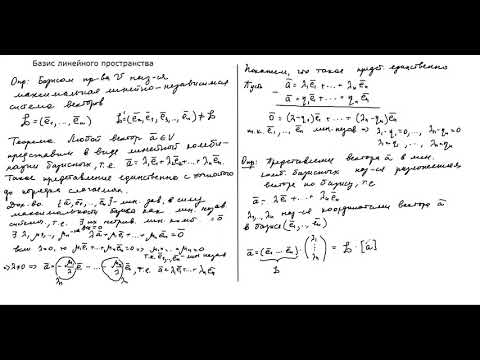 Базис линейного пространства
Опр: Базисом пр-ва V наз-ся
максимальная линейно-независимая
система векторов
𝓑=(ē₁,…,ēₙ) 𝓑'=(ēₙ,ē₁,ē₂,…,ēₙ) ≠ 𝓑
Теорема. Любой вектор ā∈V
представим в виде линейной комби-
нации базисных, т.е. ā=λ₁ē₁+λ₂ē₂+…+λₙēₙ
Такое представление единственно с точностью
до порядка слагаемых.
Док-во. {ā,ē₁,…,ēₙ} - лин. зав. в силу
максимальности базиса как лин. незав.
системы, т.е. ∃ нетрив. лин. комб. = ō
∃ λ, μ₁,…, μₙ λā+μ₁ē₁+…+μₙēₙ=ō
если λ=0, то μ₁ē₁+…+μₙēₙ=ō => μ₁=…=μₙ=0
т.к. ē₁,…,ēₙ - лин. незав
=> λ≠0 => ā=-μ₁/λ ē₁ - … - μₙ/λ ēₙ, т.е. ā=λ₁ē₁+…+λₙēₙ
λ₁ λₙ
Покажем, что такое предст. единственно
Пусть ā = λ₁ē₁+…+λₙēₙ
ā = q₁ē₁+…+qₙēₙ
ō=(λ₁-q₁)ē₁+…+(λₙ-qₙ)ēₙ
т.к. ē₁,…,ēₙ лин. незав => λ₁-q₁=0,…, λₙ-qₙ=0
λ₁=q₁,…, λₙ=qₙ
Опр: Представление вектора ā в лин.
комб. базисных наз-ся разложением
вектора по базису, т.е.
ā = λ₁ē₁+…+λₙēₙ
λ₁,…,λₙ наз-ся координатами вектора ā
в базисе (ē₁,…,ēₙ)
ā=(ē₁…ēₙ)·(λ₁ ⋮ λₙ) = 𝓑·[ā]
𝓑